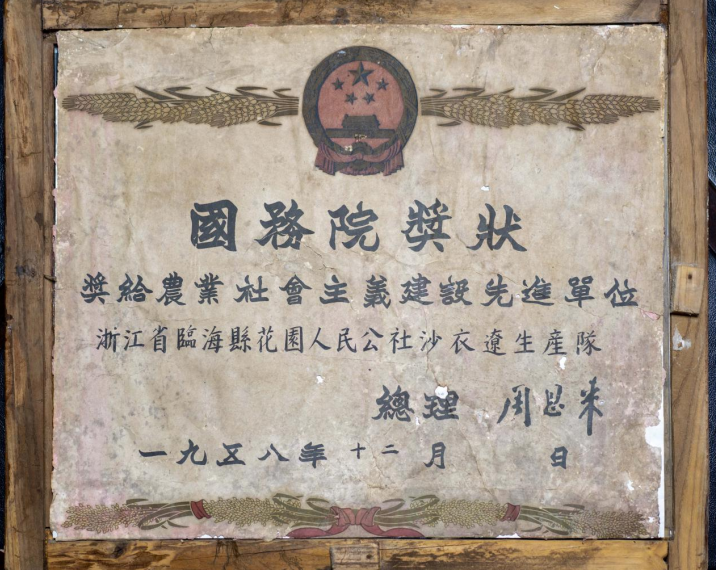 國務院獎狀
奬給農業社會主義建設先進單位
浙江省臨海縣花園人民公社沙衣遼生産隊
總理 周恩来
一九五八年十二月 日